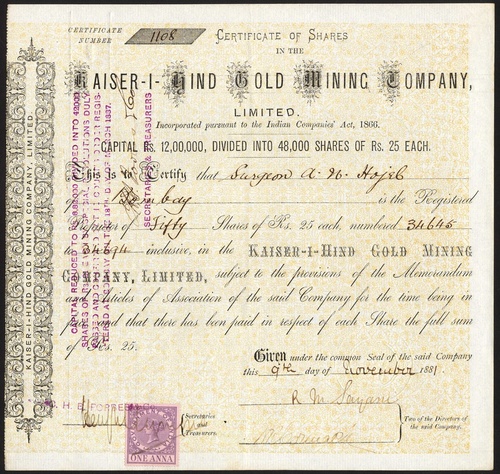 CERTIFICATE NUMBER
1108
CERTIFICATE OF SHARES
IN THE
KAISER-I-HIND GOLD MINING COMPANY,
LIMITED.
Incorporated pursuant to the Indian Companies' Act, 1866.
CAPITAL Rs. 12,00,000, DIVIDED INTO 48,000 SHARES OF Rs. 25 EACH.
This is to Certify that Surgeon A. N. Hojel
of Bombay is the Registered
Proprietor of Fifty Shares of Rs. 25 each, numbered 34645
to inclusive, in the KAISER-I-HIND GOLD MINING
COMPANY, LIMITED, subject to the provisions of the Memorandum
and Articles of Association of the said Company for the time being in
force and that there has been paid in respect of each Share the full sum
of Rs. 25.
Given under the common Seal of the said Company
this 9th day of November 1881.
R. M. Sayani
Two of the Directors of the said Company.
H. B. FORBES
Secretaries and Treasurers.
ONE ANNA
KAISER-I-HIND GOLD MINING COMPANY, LIMITED.
SECRETARIES & TREASURERS